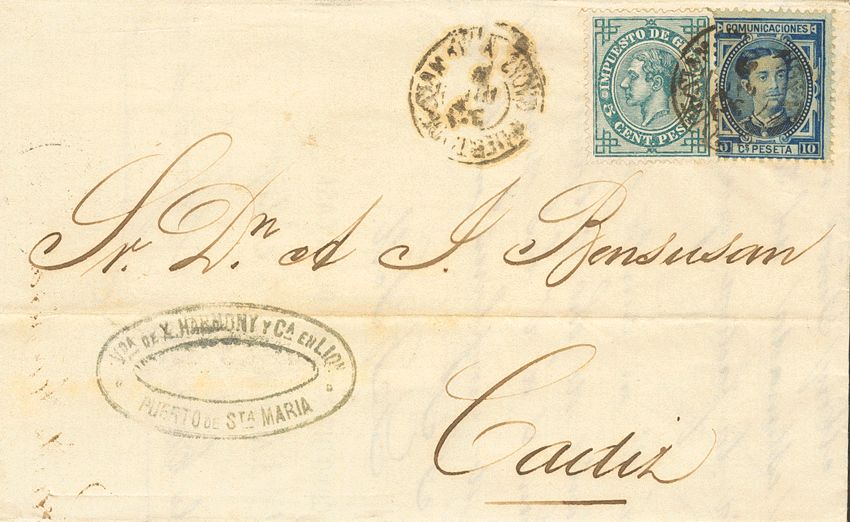 IMPUESTO DE G
5 CENT. PES
COMUNICACIONES
Cs PESETA 10
Sr. Dn A I Bensusan
VDA DE X. HARMONY Y CA EN LIQN
PUERTO DE STA MARIA
Cadiz